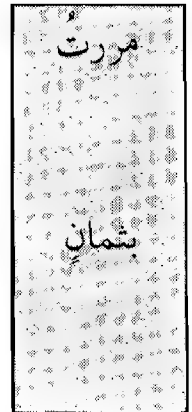 مررتُ
بثمانٍ